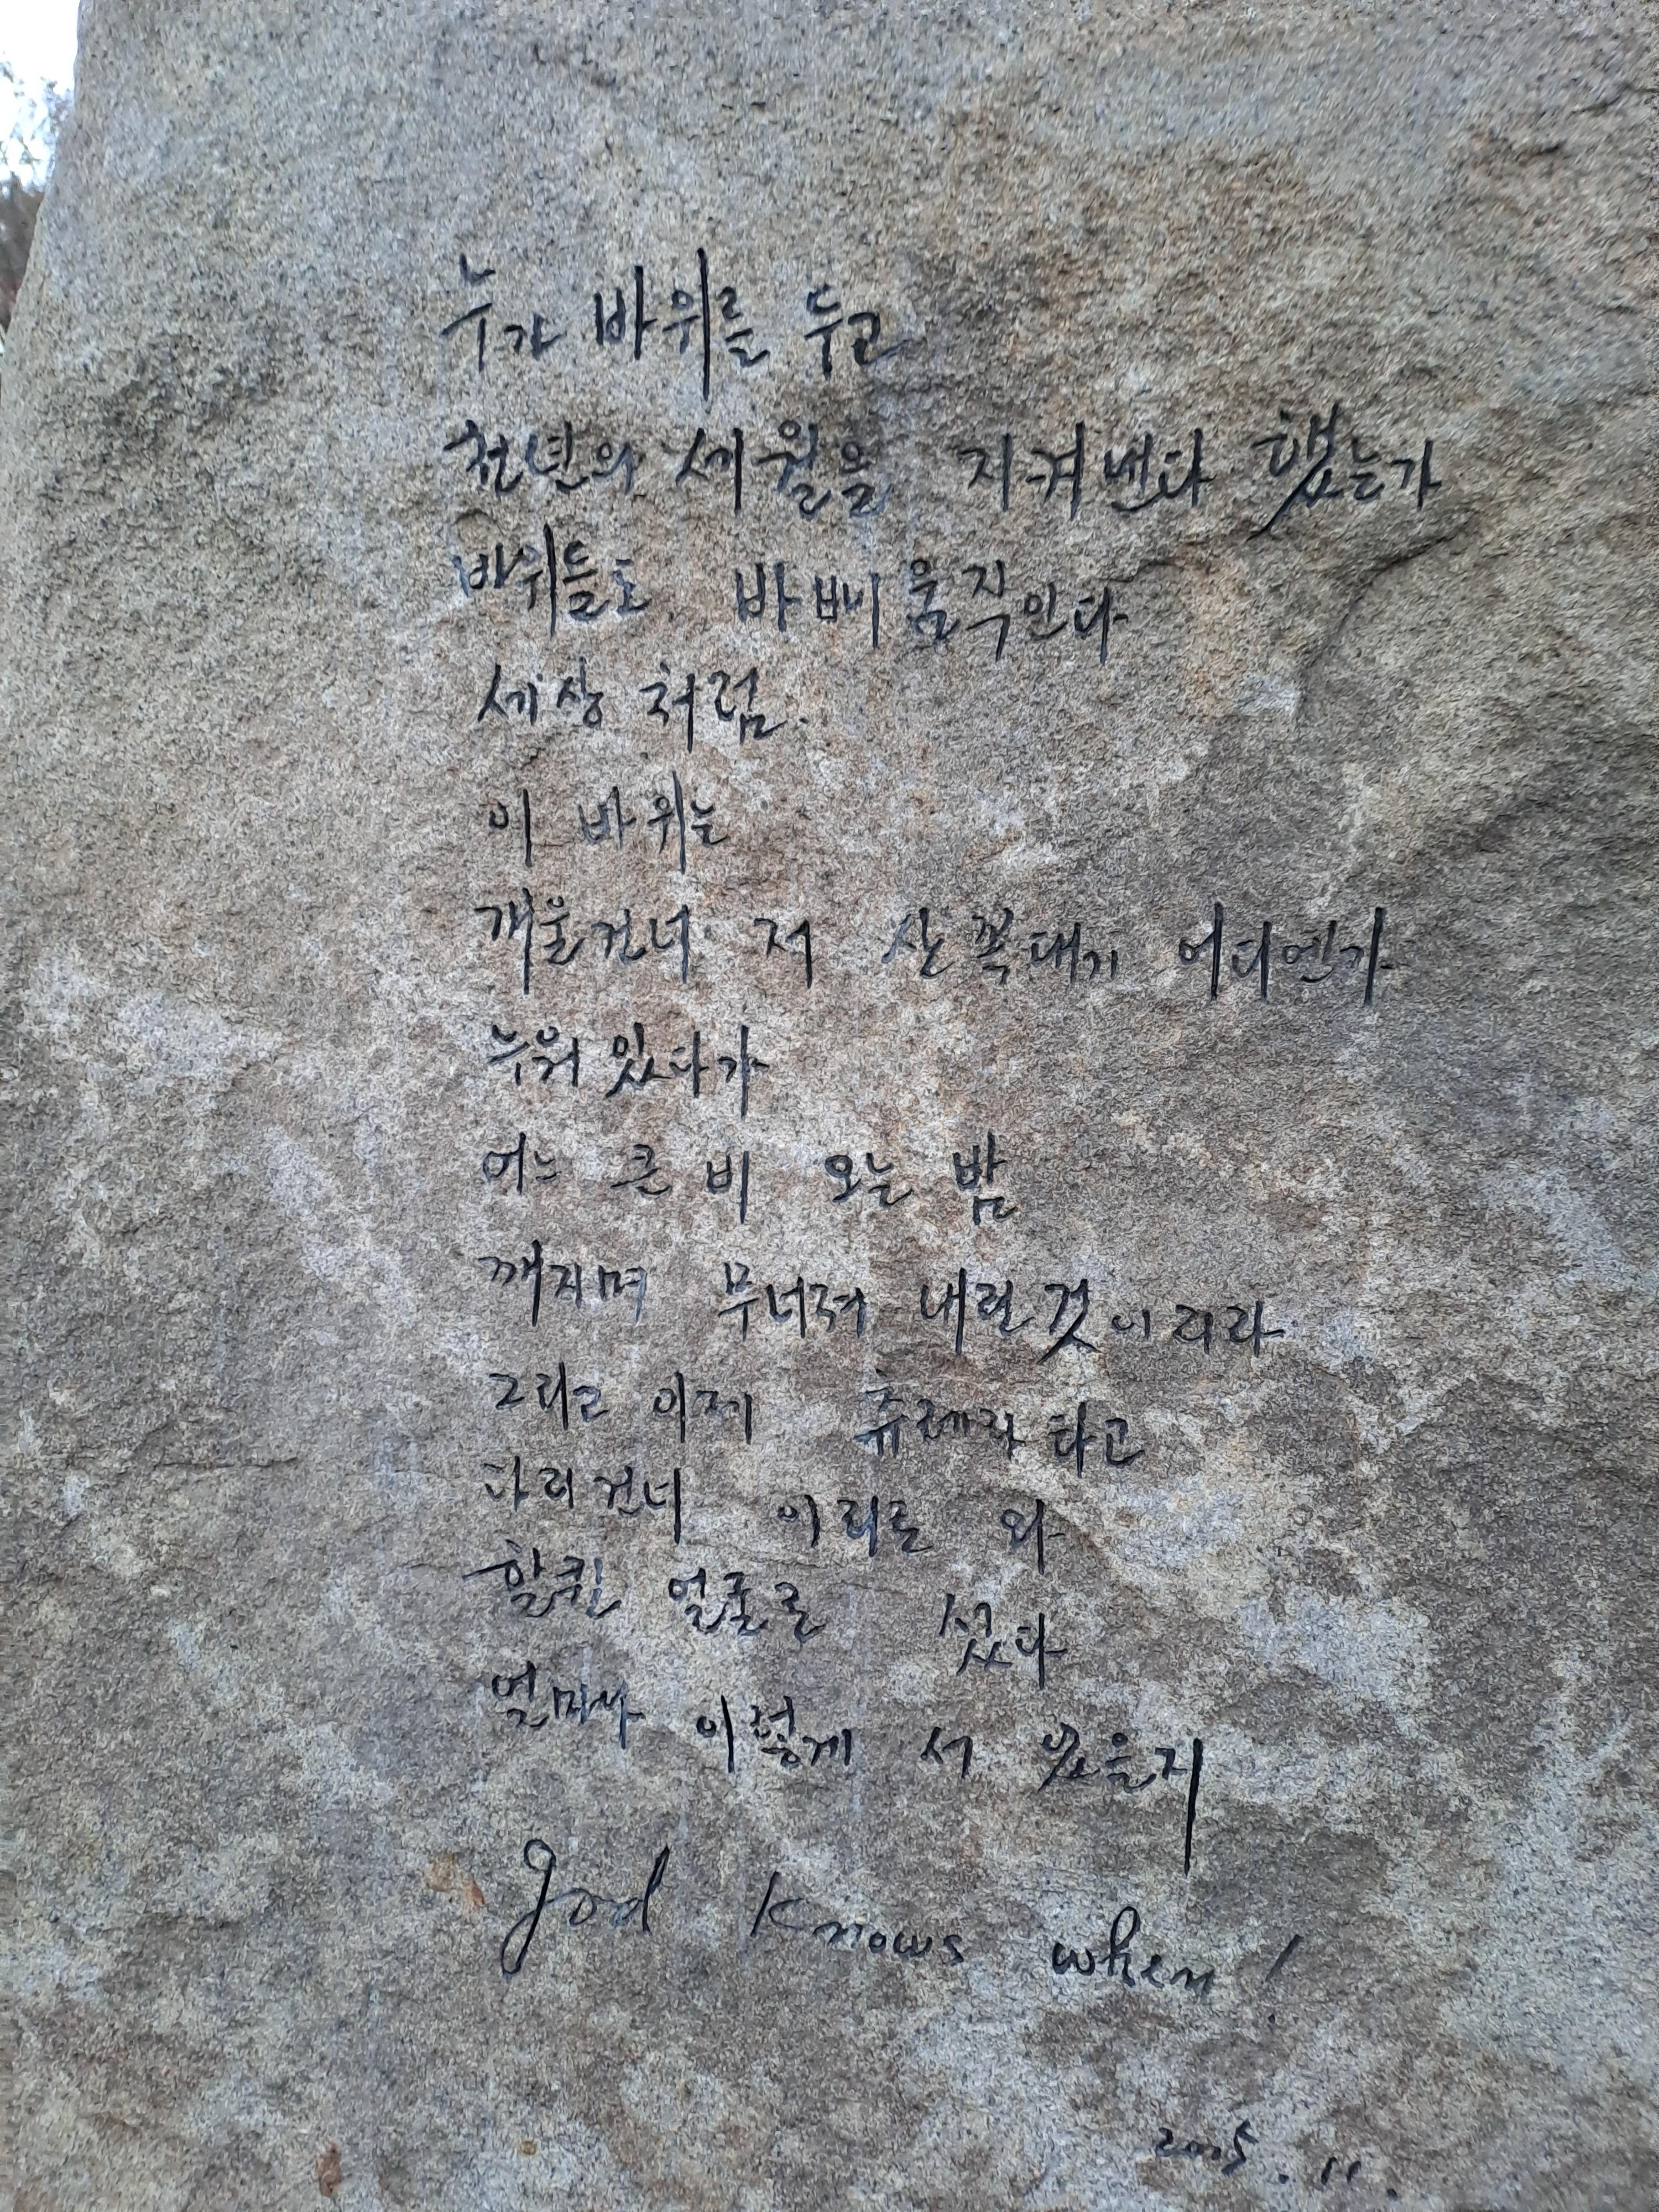 누가 바위를 두고
천년의 세월을 지켜낸다 했는가
바위들도 바삐 움직인다
세상 처럼.
이 바위는
개울건너 저 산꼭대기 어디엔가
누워 있다가
어느 큰 비 오는 밤
깨지며 무너져 내린것이리라
그리고 이제 츄레라 타고
다리건너 이리로 와
할퀸 얼굴로 섰다
얼마나 이렇게 서 있을지
God knows when!
2005. 11.